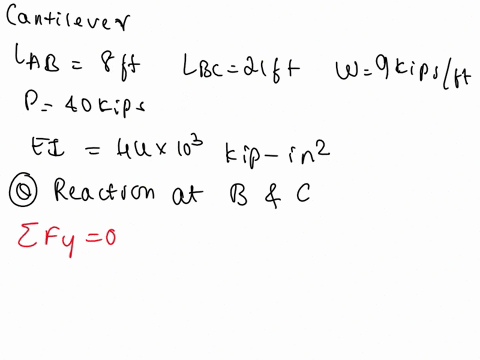 Cantilever
L_AB = 8ft L_BC = 21ft W = 9 kips/ft
P = 40 kips
EI = 44 × 10³ kip-in²
ⓐ Reaction at B & C
ΣFy = 0